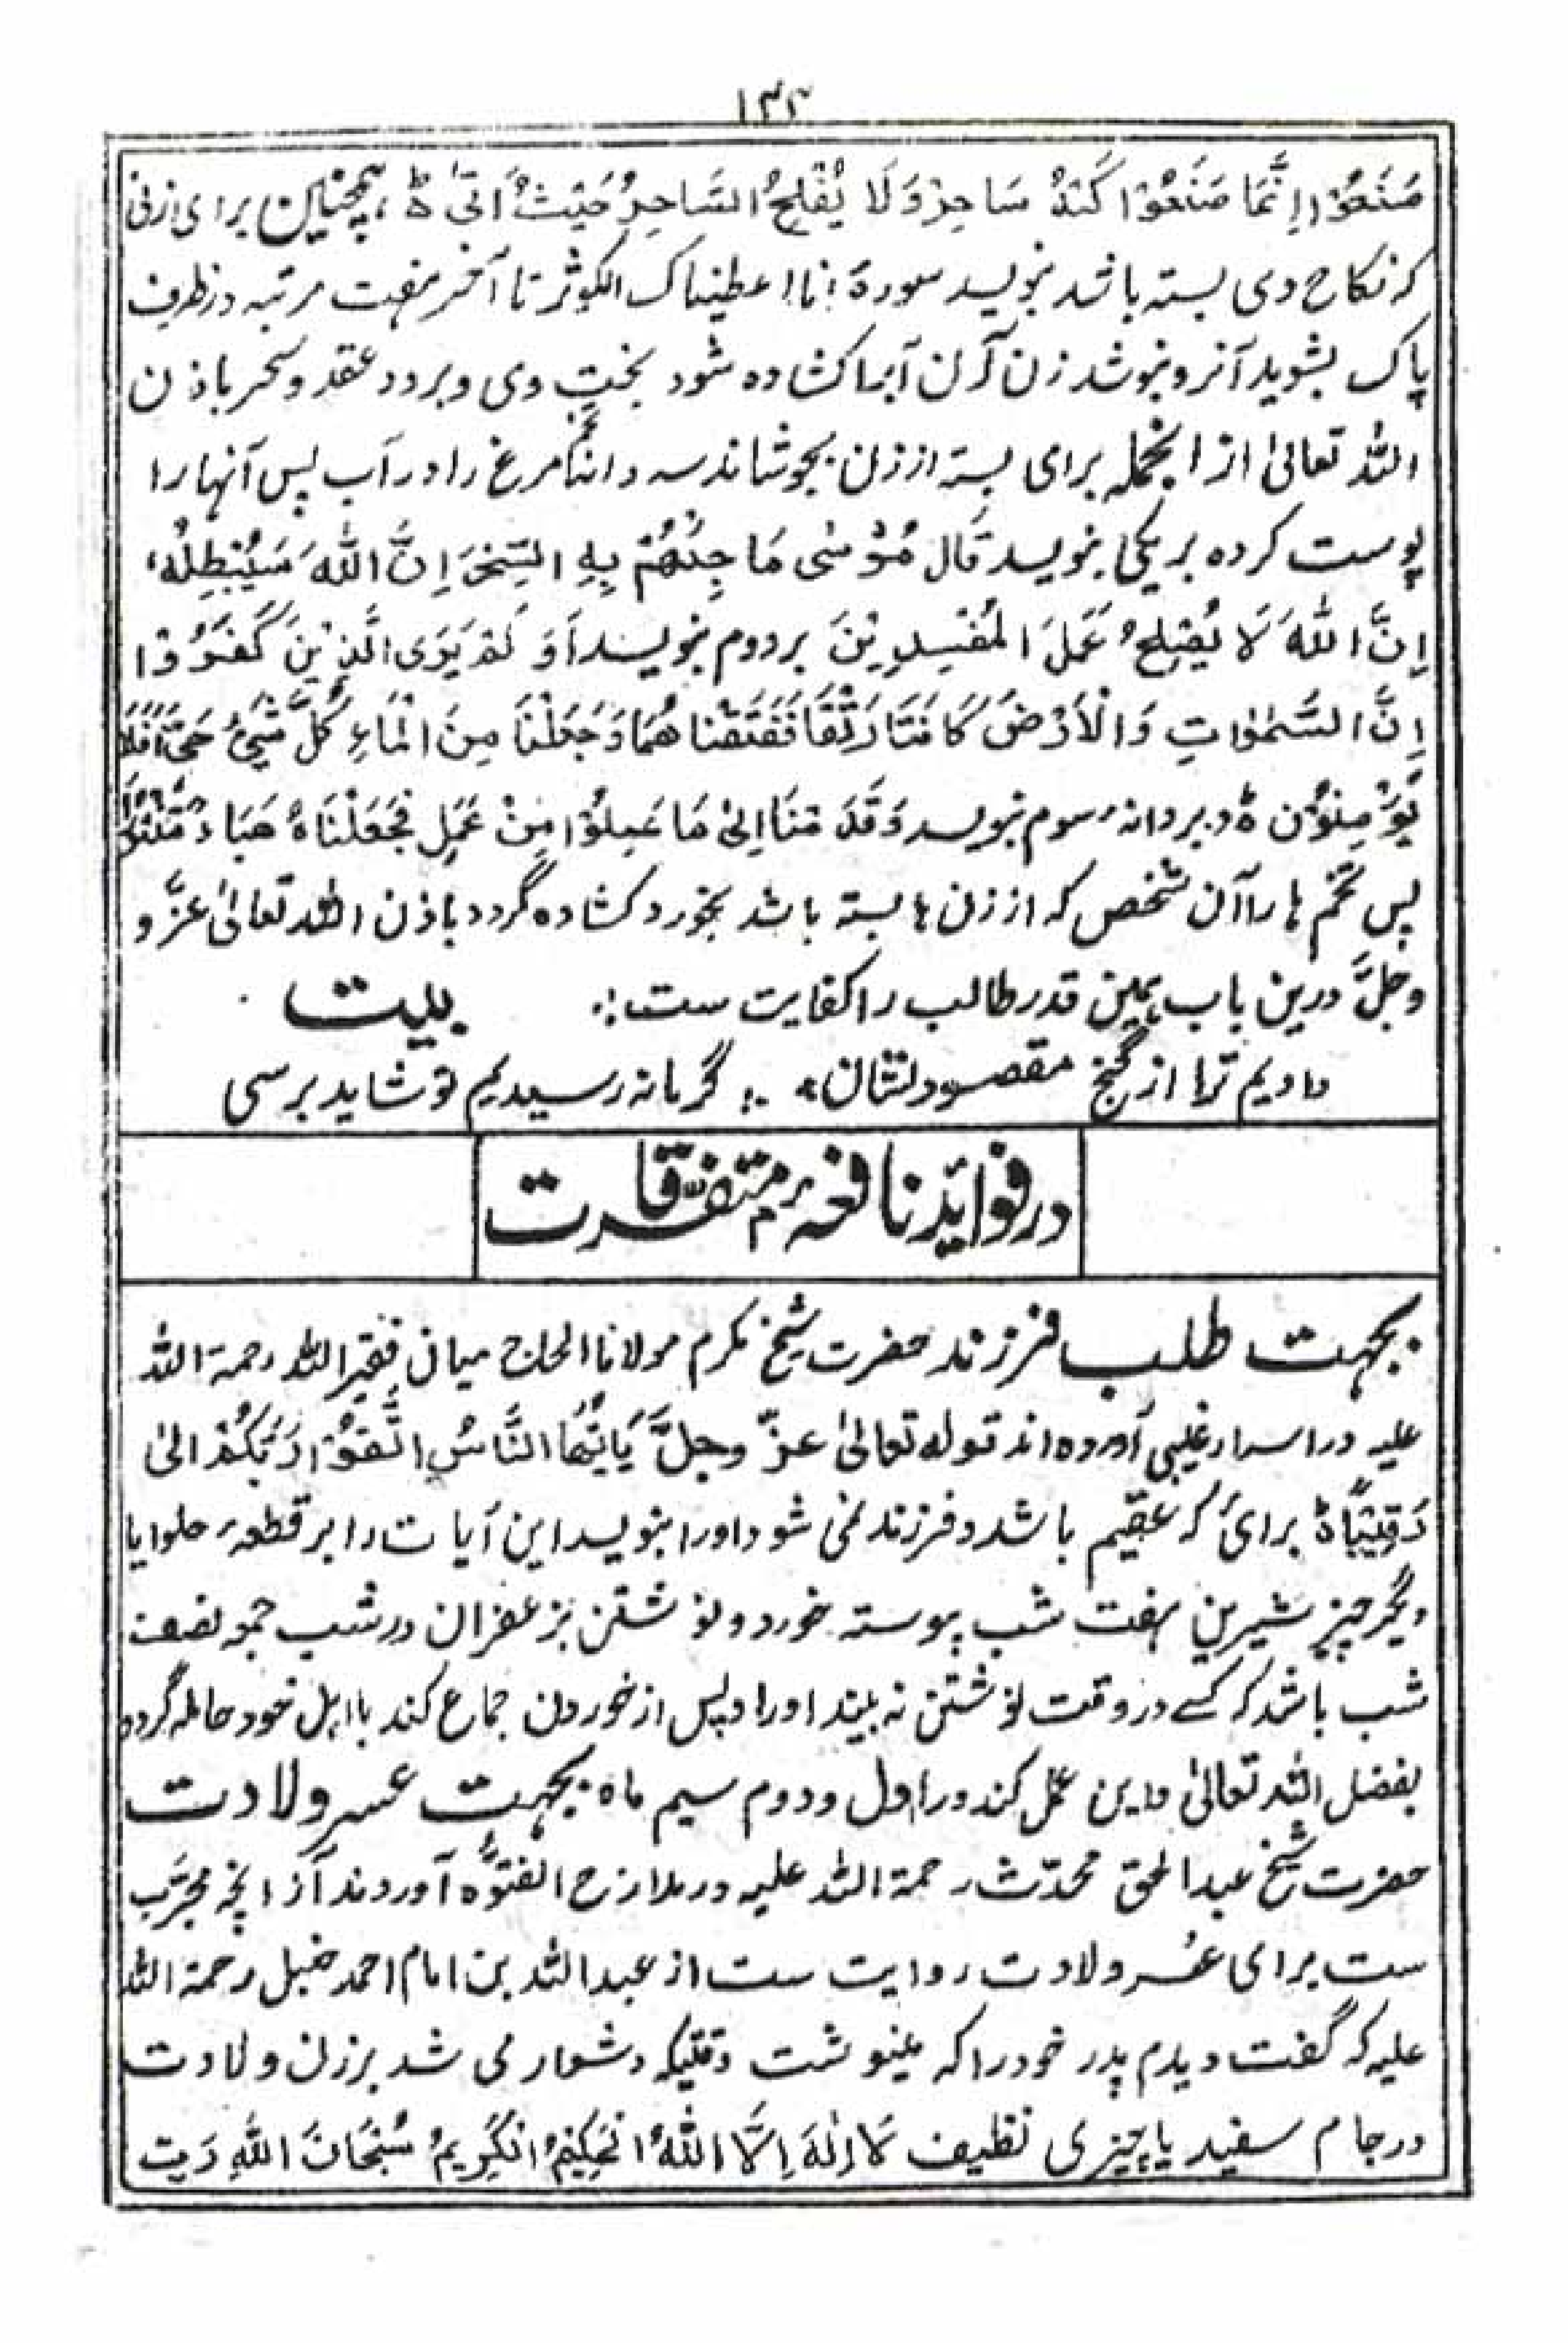 ۱۳۲
صَنَعُوْا اِنَّمَا صَنَعُوْا كَيْدُ سَاحِرٍ وَلَا يُفْلِحُ السَّاحِرُ حَيْثُ اَتٰى ه ہمچنان برای زنی
کہ نکاح وی بستہ باشد بنویسد سورۂ انا اعطیناک الکوثر تا آخر ہفت مرتبہ در ظرف
پاک بشوید آنرو بنوشد زن آن آبرا کشادہ شود بخت وی و برود عقد و سحر باذن
اللہ تعالیٰ از انجملہ برای بستہ از زن بجوشاند سہ دانہ مرغ را در آب پس آنہا را
پوست کردہ بر یکی بنویسد قَالَ مُوْسٰى مَا جِئْتُمْ بِهِ السِّحْرَ اِنَّ اللهَ سَيُبْطِلُهُ
اِنَّ اللهَ لَا يُصْلِحُ عَمَلَ الْمُفْسِدِيْنَ بر دوم بنویسد اَوَ لَمْ يَرَى الَّذِيْنَ كَفَرُوْا
اِنَّ السَّمٰوٰاتِ وَالْاَرْضَ كَانَتَا رَتْقًا فَفَتَقْنَا هُمَا وَجَعَلْنَا مِنَ الْمَاءِ كُلَّ شَيْئٍ حَيٍّ اَفَلَا
يُؤْمِنُوْن ه و بر دانہ سوم بنویسد وَقَدِمْنَا اِلىٰ مَا عَمِلُوْا مِنْ عَمَلٍ فَجَعَلْنَاهُ هَبَاءً مَّنْثُوْرًا
پس تخم ہا را آن شخص کہ از زن ہا بستہ باشد بخورد کشادہ گردد باذن اللہ تعالیٰ عزّ و
وجلَّ درین باب ہمین قدر طالب را کفایت ست ؛ بیت
دادیم ترا از گنج مقصود نشان ؛ گر ما نہ رسیدیم تو شاید برسی
در فوائد نافعہ متفرّقات
بجہت طلب فرزند حضرت شیخ مکرم مولانا الحاج میان فقیر اللہ رحمۃ اللہ
علیہ در اسرار غیبی آوردہ اند قولہ تعالیٰ عزّ وجلَّ يَايُّهَا النَّاسُ اتَّقُوْا رَبَّكُمْ الیٰ
رَقِيْبًا ه برائ کہ عقیم باشد و فرزند نمی شود اورا بنویسد این آیات را بر قطعہ حلوا یا
دیگر چیز شیرین ہفت شب پیوستہ خورد و نوشتن بزعفران در شب جمعہ نصف
شب باشد کہ کسے در وقت نوشتن نہ بیند اورا و پس از خوردن جماع کند با اہل خود حاملہ گردد
بفضل اللہ تعالیٰ و این عمل کند در اول و دوم سیم ماہ بجہت عسر ولادت
حضرت شیخ عبد الحق محدّث رحمۃ اللہ علیہ در مدارج النبوّہ آوردند آز انچہ مجرّب
ست برای عُسر ولادت روایت ست از عبد اللہ بن امام احمد حنبل رحمۃ اللہ
علیہ کہ گفت دیدم پدر خود را کہ مینوشت وقتیکہ دشوار می شد بر زن ولادت
در جام سفید یا چیزی نظیف لَا اِلٰهَ اِلَّا اللهُ الْحَكِيْمُ الْكَرِيمُ سُبْحَانَ اللهِ رَبِّ